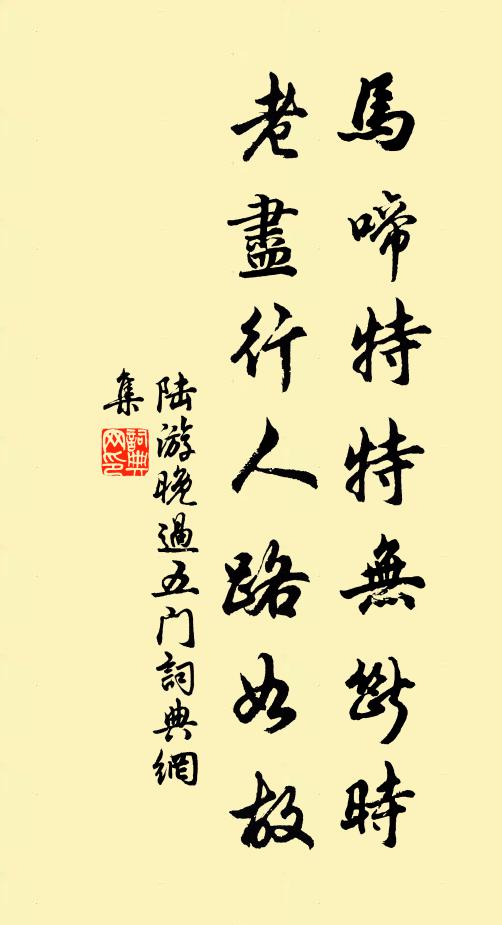 馬啼特特無斷時
老盡行人路如故
陆游晚過五门詞典網
集
詞典网印